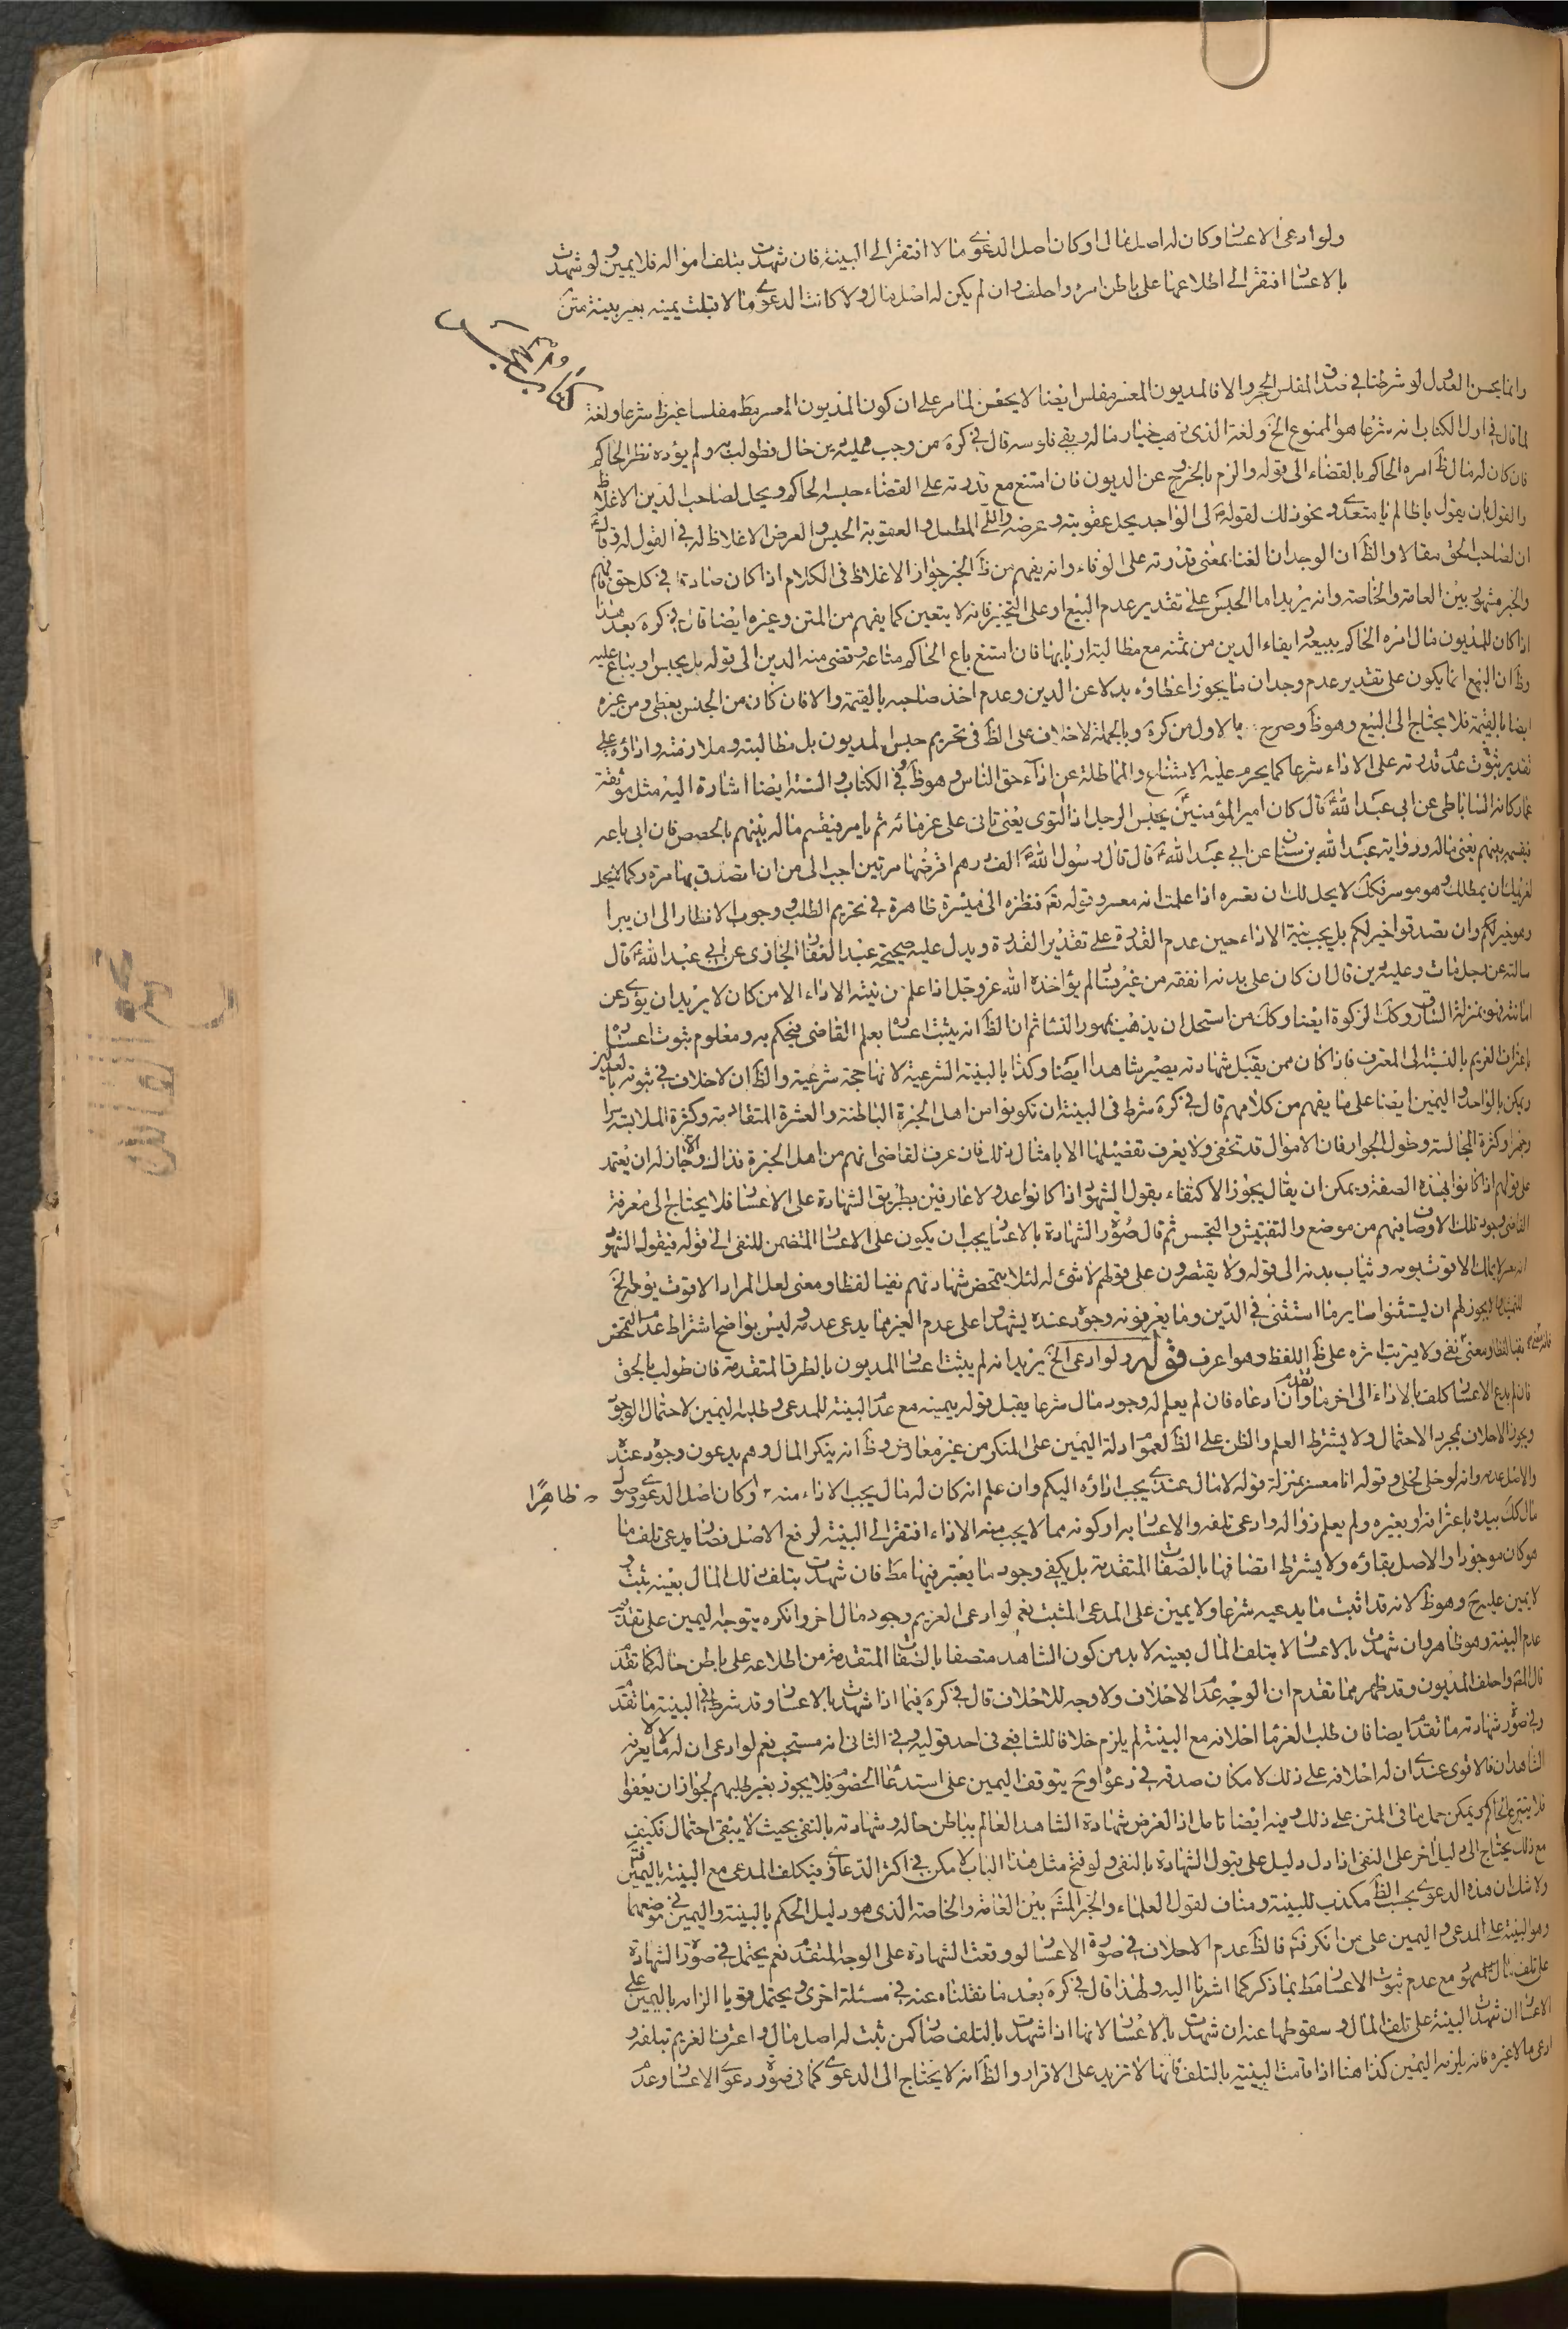 ولو ادعى الاعسار وكان له اصل مال او كان اصل الدعوى مالا افتقر الى البينة فان شهدت بتلف امواله فلا يمين ولو شهدت
بالاعسار افتقر الى اطلاعها على باطن امره واحلف وان لم يكن له اصل مال ولا كانت الدعوى مالا قبلت يمينه بغير بينة متن
وانما يحسن العدول لو شرطنا في صدق المفلس الحجر والا فالمديون المعسر مفلس ايضا لا يخفى لما مر على ان كون المديون المعسر مط مفلسا غير ظ شرعا ولغة
لما قال في اول الكتاب انه شرعا هو الممنوع الخ ولغة الذى ذهب خيار ماله وبقى فلوسه قال في كره من وجب عليه دين حال فطولب به ولم يؤده نظر الحاكم
فان كان له مال ظ امره الحاكم بالقضاء الى قوله والزم بالخروج عن الديون فان امتنع مع قدرته على القضاء حبسه الحاكم ويحل لصاحب الدين الاغلاظ
والقول بان يقول يا ظالم يا متعدى ونحو ذلك لقوله لى الواجد يحل عقوبته وعرضه واللى المطل والعقوبة الحبس والعرض الاغلاظ له في القول له وقال
ان لصاحب الحق مقالا والظ ان الوجدان الغنا بمعنى قدرته على الوفاء وانه يفهم من ظ الخبر جواز الاغلاظ فى الكلام اذا كان صادقا في كل حق فافهم
والخبر مشهور بين العامة والخاصة وانه يريد اما الحبس على تقدير عدم البيع او على التخيير فانه لا يتعين كما يفهم من المتن وغيره ايضا قال في كره بعد هذا
اذا كان للمديون مال امره الحاكم ببيعه وايفاء الدين من ثمنه مع مطالبة اربابها فان امتنع باع الحاكم متاعه وقضى منه الدين الى قوله بل يحبس او يباع عليه
وظ ان البيع انما يكون على تقدير عدم وجدان ما يجوز اعطاؤه بدلا عن الدين وعدم اخذ صاحبه بالقيمة والا فان كان من الجنس يعطى ومن غيره
ايضا بالقيمة فلا يحتاج الى البيع وهو ظ وصرح بالاول من كره وبالجملة لا خلاف على الظ فى تحريم حبس المديون بل مطالبته وملازمته واذاؤه على
تقدير ثبوت عدم قدرته على الاداء شرعا كما يحرم عليه الامتناع والمماطلة عن اداء حق الناس وهو ظ وفى الكتاب والسنة ايضا اشارة اليه مثل موثقة
عمار كانه الساباطى عن ابى عبد الله قال كان امير المؤمنين يحبس الرجل اذا التوى يعنى تانى على غرمائه ثم يامر فيقسم ماله بينهم بالحصص فان ابى باعه
فقسمه بينهم يعنى ماله ورواية عبد الله بن سنان عن ابى عبد الله قال قال رسول الله الف درهم اقرضها مرتين احب الى من ان اتصدق بها مرة وكما لا يحل
لغريمك ان يمطلك وهو موسر فكك لا يحل لك ان تعسره اذا علمت انه معسر وقوله تع فنظرة الى ميسرة ظاهرة في تحريم الطلب ووجوب الانظار الى ان يبرا
وهو خير لكم وان تصدقوا خير لكم بل يجب نية الاداء حين عدم القدرة على تقدير القدرة ويدل عليه صحيحة عبد الغفار الجازى عن ابى عبد الله قال
سالته عن رجل مات وعليه دين قال ان كان على بدنه انفقه من غير فساد لم يؤاخذه الله عز وجل اذا علم من نيته الاداء الا من كان لا يريد ان يؤدى عن
امانته فهو بمنزلة السارق وكك الزكوة ايضا وكك من استحل ان يذهب بمهور النساء ثم ان الظ انه يثبت اعساره بعلم القاضى فيحكم به ومعلوم ثبوت اعساره
باعتراف الغريم بالنسبة الى المعترف فاذا كان ممن يقبل شهادته يصير شاهدا ايضا وكذا بالبينة الشرعية لانها حجة شرعية والظ ان لا خلاف في ثبوته بالعدلين
ويمكن بالواحد واليمين ايضا على ما يفهم من كلامهم قال في كره شرط فى البينة ان تكونوا من اهل الخبرة الباطنة والعشرة المتقادمة وكثرة الملابسة سرا
وجهرا وكثرة المجالسة وطول الجوار فان الاموال قد تخفى ولا يعرف تفصيلها الا بامثال ذلك فان عرف القاضى انهم من اهل الخبرة فذاك والا جاز له ان يعتمد
على قولهم اذا كانوا بهذه الصفة ويمكن ان يقال يجوز الاكتفاء بقول الشهود اذا كانوا عدولا عارفين بطريق الشهادة على الاعسار فلا يحتاج الى معرفة
القاضى وجود تلك الاوصاف فيهم من موضع والتفتيش والتجسس ثم قال صورة الشهادة بالاعسار يجب ان يكون على الاعسار المتضمن للنفى الى قوله فيقول الشهود
انه معسر لا يملك الا قوت يومه وثياب بدنه الى قوله ولا يقتصرون على قولهم لا شئ له لئلا يتمحض شهادتهم نفيا لفظا ومعنى لعل المراد الا قوت يومه الخ
للتمثيل فيجوز لهم ان يستثنوا ساير ما استثنى في الدين وما يعرفونه وجوده عنده ليشهدوا على عدم الغير مما يدعى عدمه وليس بواضح اشتراط عدم التمحض
نفيا لفظا ومعنى نفى ولا يترتب اثره على ظ اللفظ وهو اعرف قوله ولو ادعى الخ يريد انه لم يثبت اعسار المديون بالطرق المتقدمة فان طولب بالحق
فان لم يدع الاعسار كلف بالاداء الى اخر ما تقدم وان ادعاه فان لم يعلم له وجود مال شرعا يقبل قوله بيمينه مع عدم البينة للمدعى وطلبه اليمين لاحتمال الوجود
ويجوز الاحلاف بمجرد الاحتمال ولا يشترط العلم والظن على الظ لعموم ادلة اليمين على المنكر من غير معارض وظ انه ينكر المال وهم يدعون وجوده عنده
والاصل عدمه وانه لو خلى لخلى وقوله انا معسر بمنزلة قوله لا مال عندى يجب اداؤه اليكم وان علم انه كان له مال يجب الاداء منه او كان اصل الدعوى وصول
ظاهرا
مال كك بيده باعترافه او بغيره ولم يعلم زواله وادعى تلفه والاعسار به او كونه مما لا يجب منه الاداء افتقر الى البينة لرفع الاصل فصار يدعى تلف ما
هو كان موجودا والاصل بقاؤه ولا يشترط اتصافها بالصفات المتقدمة بل يكفى وجود ما يعتبر فيها مط فان شهدت بتلف ذلك المال بعينه ثبت و
لا يمين عليه ح وهو ظ لانه قد اثبت ما يدعيه شرعا ولا يمين على المدعى المثبت نعم لو ادعى الغريم وجود مال اخر وانكره يتوجه اليمين على تقدير
عدم البينة وهو ظاهر وان شهدت بالاعسار لا بتلف المال بعينه لا بد من كون الشاهد متصفا بالصفات المتقدمة من اطلاعه على باطن حاله كما تقدم
قال المص واحلف المديون وقد ظهر مما تقدم ان الوجه عدم الاحلاف ولا وجه للاحلاف قال في كره فيما اذا شهدت بالاعسار وقد شرط في البينة ما تقدم
وفى صورة شهادته ما تقدم ايضا فان طلب الغرماء احلافه مع البينة لم يلزم خلافا للشافعى فى احد قوليه وفى الثانى انه مستحب نعم لو ادعى ان له مالا لا يعرفه
الشاهدان فالاقوى عندى ان له احلافه على ذلك لامكان صدقه في دعواه وح يتوقف اليمين على استدعاء الخصوم فلا يجوز بغير طلبهم لجواز ان يعفوا
فلا يتبرع الحاكم ويمكن حمل ما فى المتن على ذلك وفيه ايضا تامل اذ الغرض شهادة الشاهد العالم بباطن حاله وشهادته بالنفى بحيث لا يبقى احتمال فكيف
مع ذلك يحتاج الى دليل اخر على النفى اذا دل دليل على قبول الشهادة بالنفى ولو فتح مثل هذا الباب لامكن في اكثر الدعاوى فيكلف المدعى مع البينة باليمين فتم
ولا شك ان هذه الدعوى بحسب الظ مكذب للبينة ومناف لقول العلماء والخبر المشهور بين العامة والخاصة الذى هو دليل الحكم بالبينة واليمين في موضعهما
وهو البينة على المدعى واليمين على من انكر فتم فالظ عدم الاحلاف في صورة الاعسار لو وقعت الشهادة على الوجه المتقدم نعم يحتمل في صورة الشهادة
على تلف مال المعهود مع عدم ثبوت الاعسار مط بما ذكر كما اشرنا اليه ولهذا قال في كره بعد ما نقلناه عنه في مسئلة اخرى ويحتمل قويا الزامه باليمين على
الاعسار ان شهدت البينة على تلف المال وسقوطها عنه ان شهدت بالاعسار لانها اذا شهدت بالتلف صار كمن ثبت له اصل مال واعترف الغريم بتلفه و
ادعى مالا غيره فانه يلزمه اليمين كذا هنا اذا قامت البينة بالتلف فانها لا تزيد على الاقرار والظ انه لا يحتاج الى الدعوى كما فى صورة دعوى الاعسار وعدم